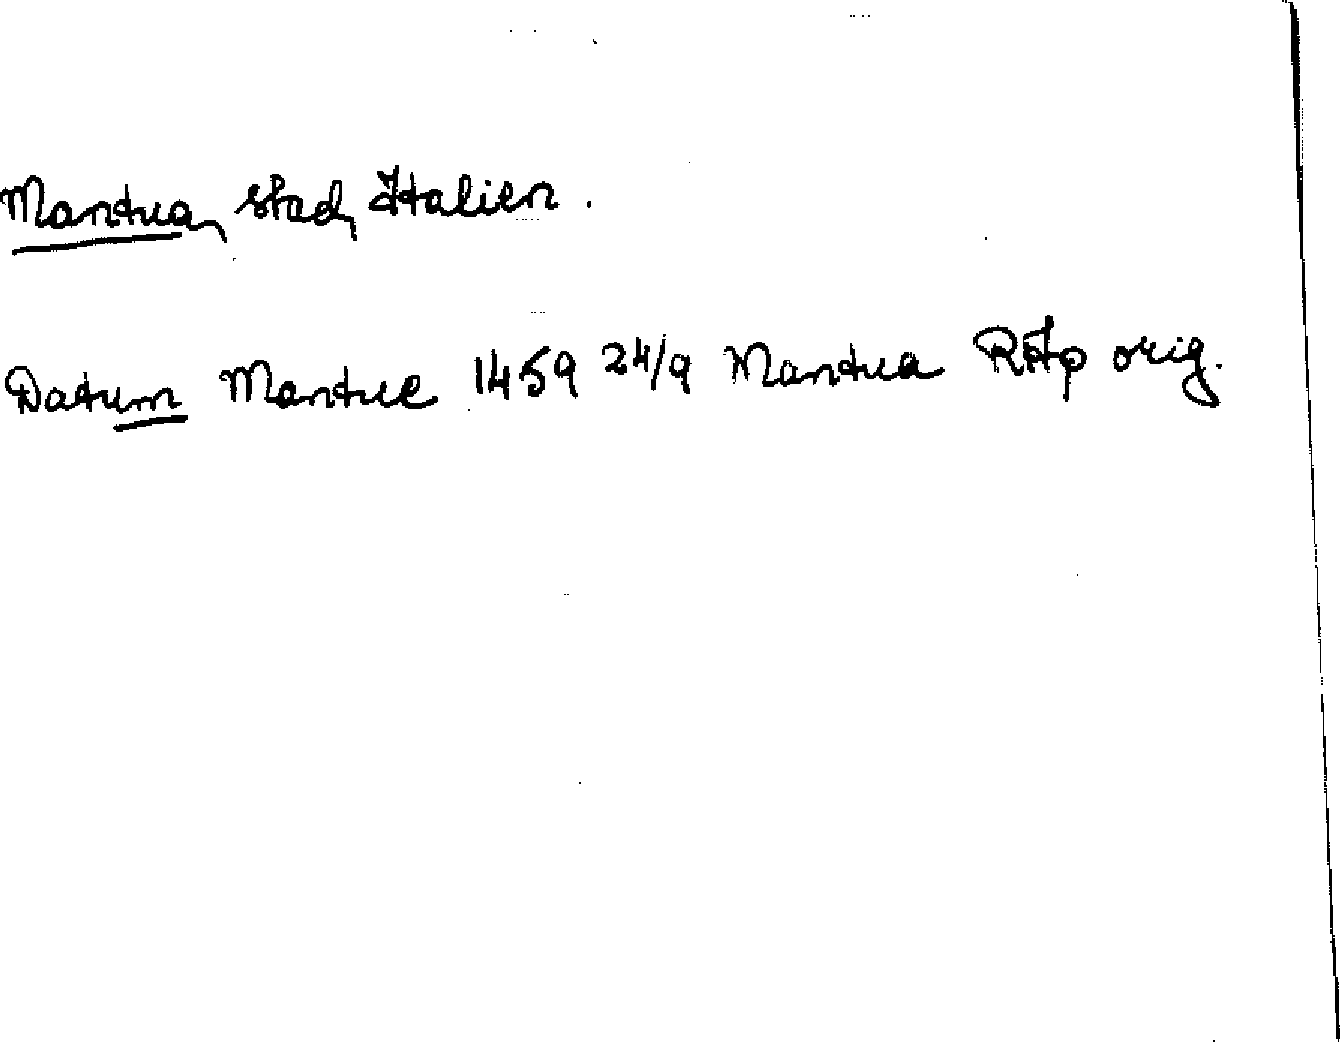 Mantua, stad, Italien.
Datum Mantue 1459 24/9 Mantua RAp orig.